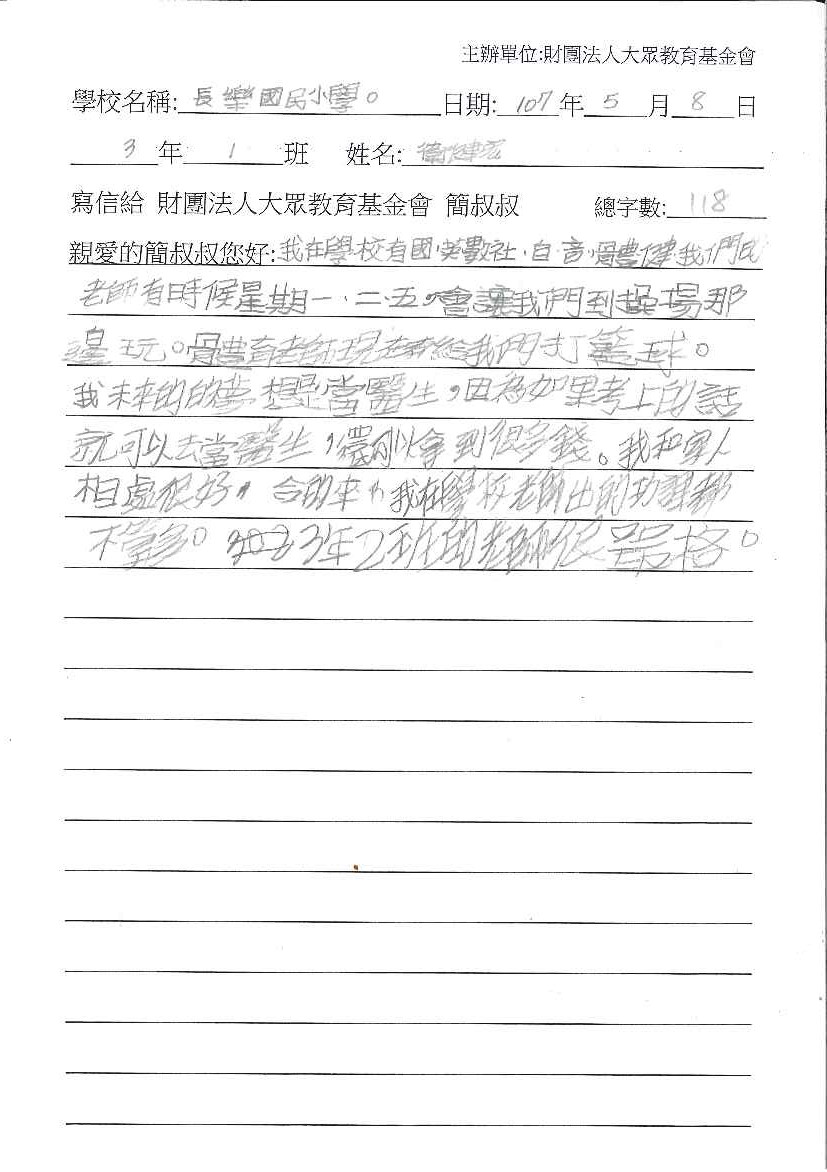 主辦單位:財團法人大眾教育基金會
學校名稱:長樂國民小學。日期:107年5月8日
3年1班 姓名:衛健宏
寫信給 財團法人大眾教育基金會 簡叔叔 總字數:118
親愛的簡叔叔您好:我在學校有國、英數社、自、音、體健我們
老師有時候星期一、二、五。會讓我們到操場那
邊玩。體育老師現在有給我們打籃球。
我未來的的夢想是當醫生,因為如果考上的話
就可以去當醫生,還可以拿到很多錢。我和家人
相處很好,合的來,我在學校老師出的功課都
不多。3年2班的老師很嚴格。